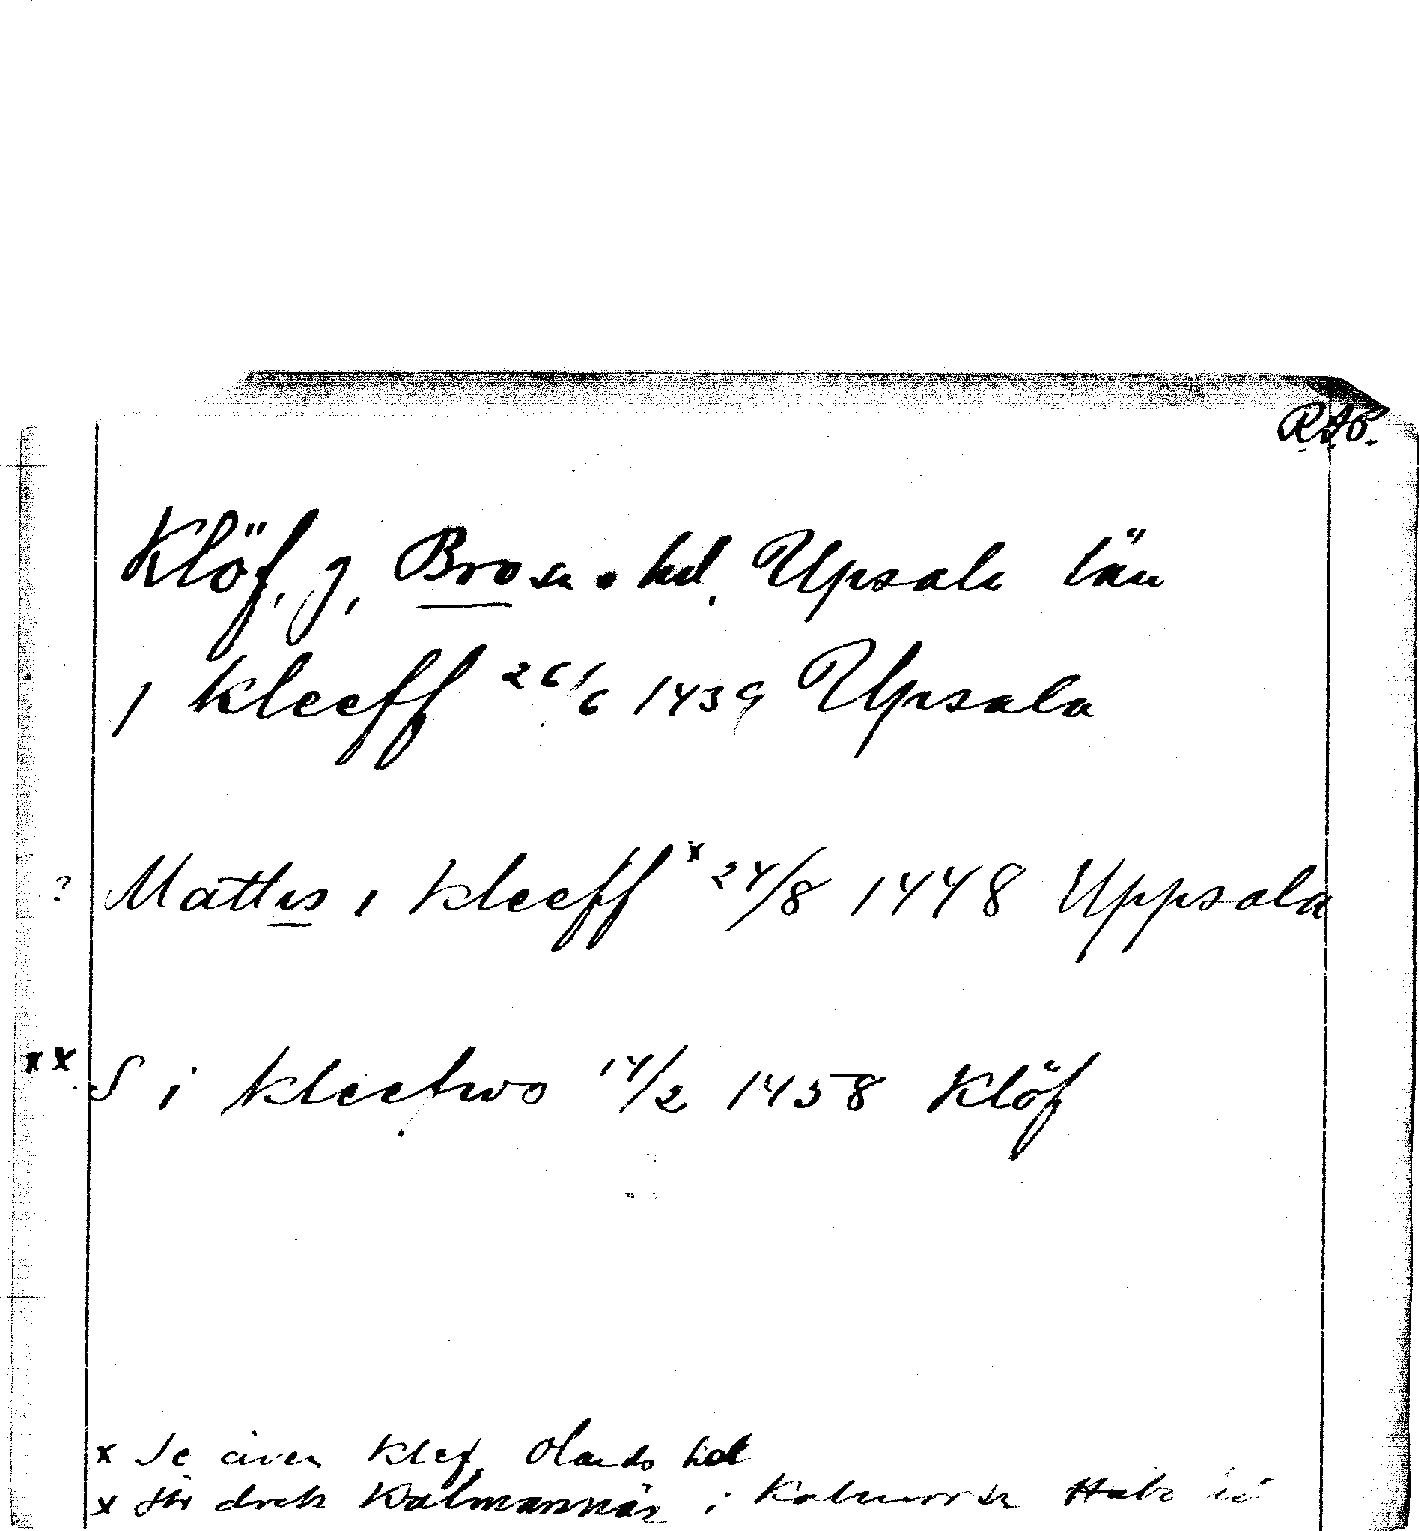 RAP.
Klöf, g, Bro sn o hd. Upsala län
i kleeff 26/6 1439 Upsala
? Mattis i kleeff x 24/8 1448 Uppsala
xx S i kleefwo 14/2 1458 Klöf
x Se även Klef, Olands hd
x Jfr dock Kalmannäs i Kalmar sn Håbo